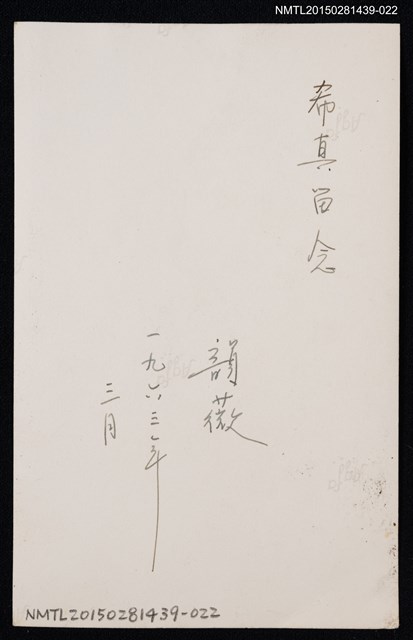 NMTL20150281439-022
希真留念
韻薇
一九六三年
三月
NMTL20150281439-022